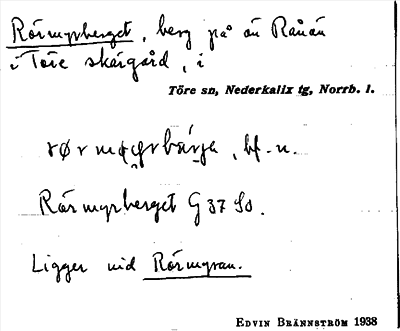 Rörmyrberget, berg på ön Rånön
i Töre skärgård, i
Töre sn, Nederkalix tg, Norrb. l.
bf. n.
Rörmyrberget G 37 So.
Ligger vid Rörmyran.
EDVIN BRÄNNSTRÖM 1938